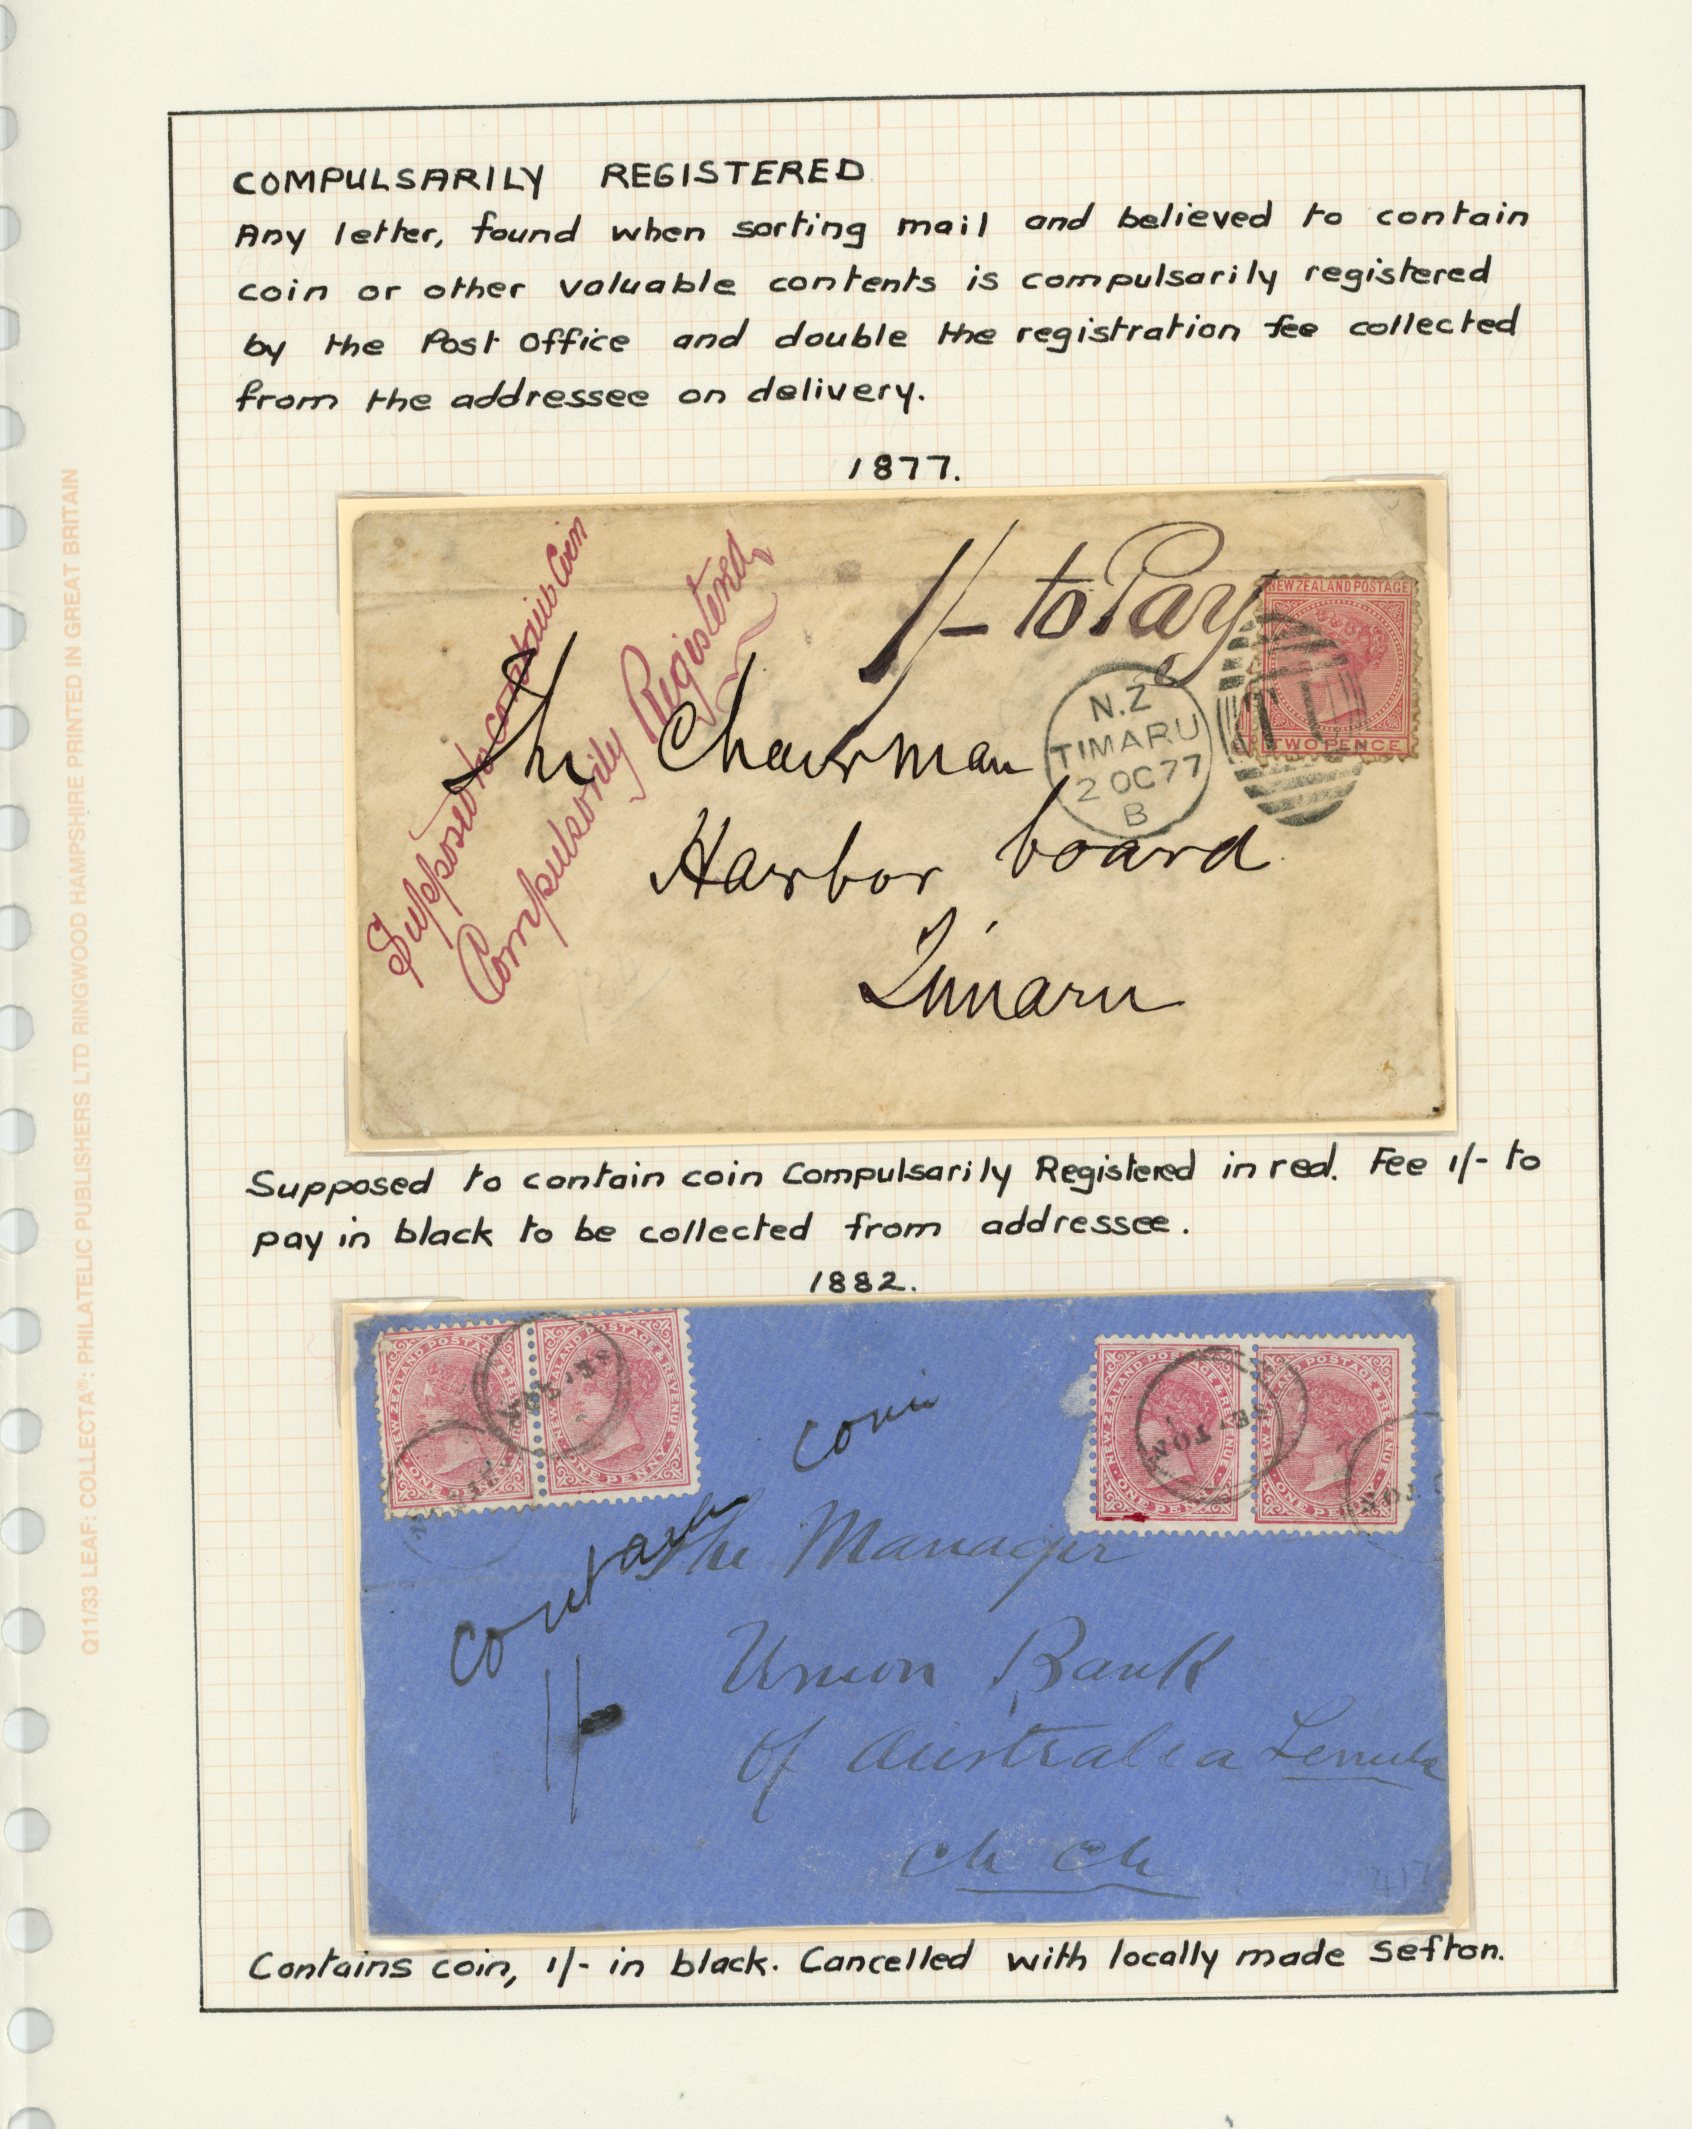 COMPULSARILY REGISTERED
Any letter, found when sorting mail and believed to contain
coin or other valuable contents is compulsarily registered
by the Post Office and double the registration fee collected
from the addressee on delivery.
1877.
Supposed to contain Coin
Compulsorily Registered
1/- to Pay
NEW ZEALAND POSTAGE
TWO PENCE
N.Z
TIMARU
2 OC 77
B
The Chairman
Harbor board
Timaru
134
Supposed to contain coin Compulsarily Registered in red. Fee 1/- to
pay in black to be collected from addressee.
1882.
NEW ZEALAND POSTAGE & REVENUE
ONE PENNY
NEW ZEALAND POSTAGE & REVENUE
ONE PENNY
NEW ZEALAND POSTAGE & REVENUE
ONE PENNY
NEW ZEALAND POSTAGE & REVENUE
ONE PENNY
Contains Coin
1/-
The Manager
Union Bank
of Australia
Ch Ch
Contains coin, 1/- in black. Cancelled with locally made Sefton.
Q11/33 LEAF: COLLECTA®: PHILATELIC PUBLISHERS LTD RINGWOOD HAMPSHIRE PRINTED IN GREAT BRITAIN